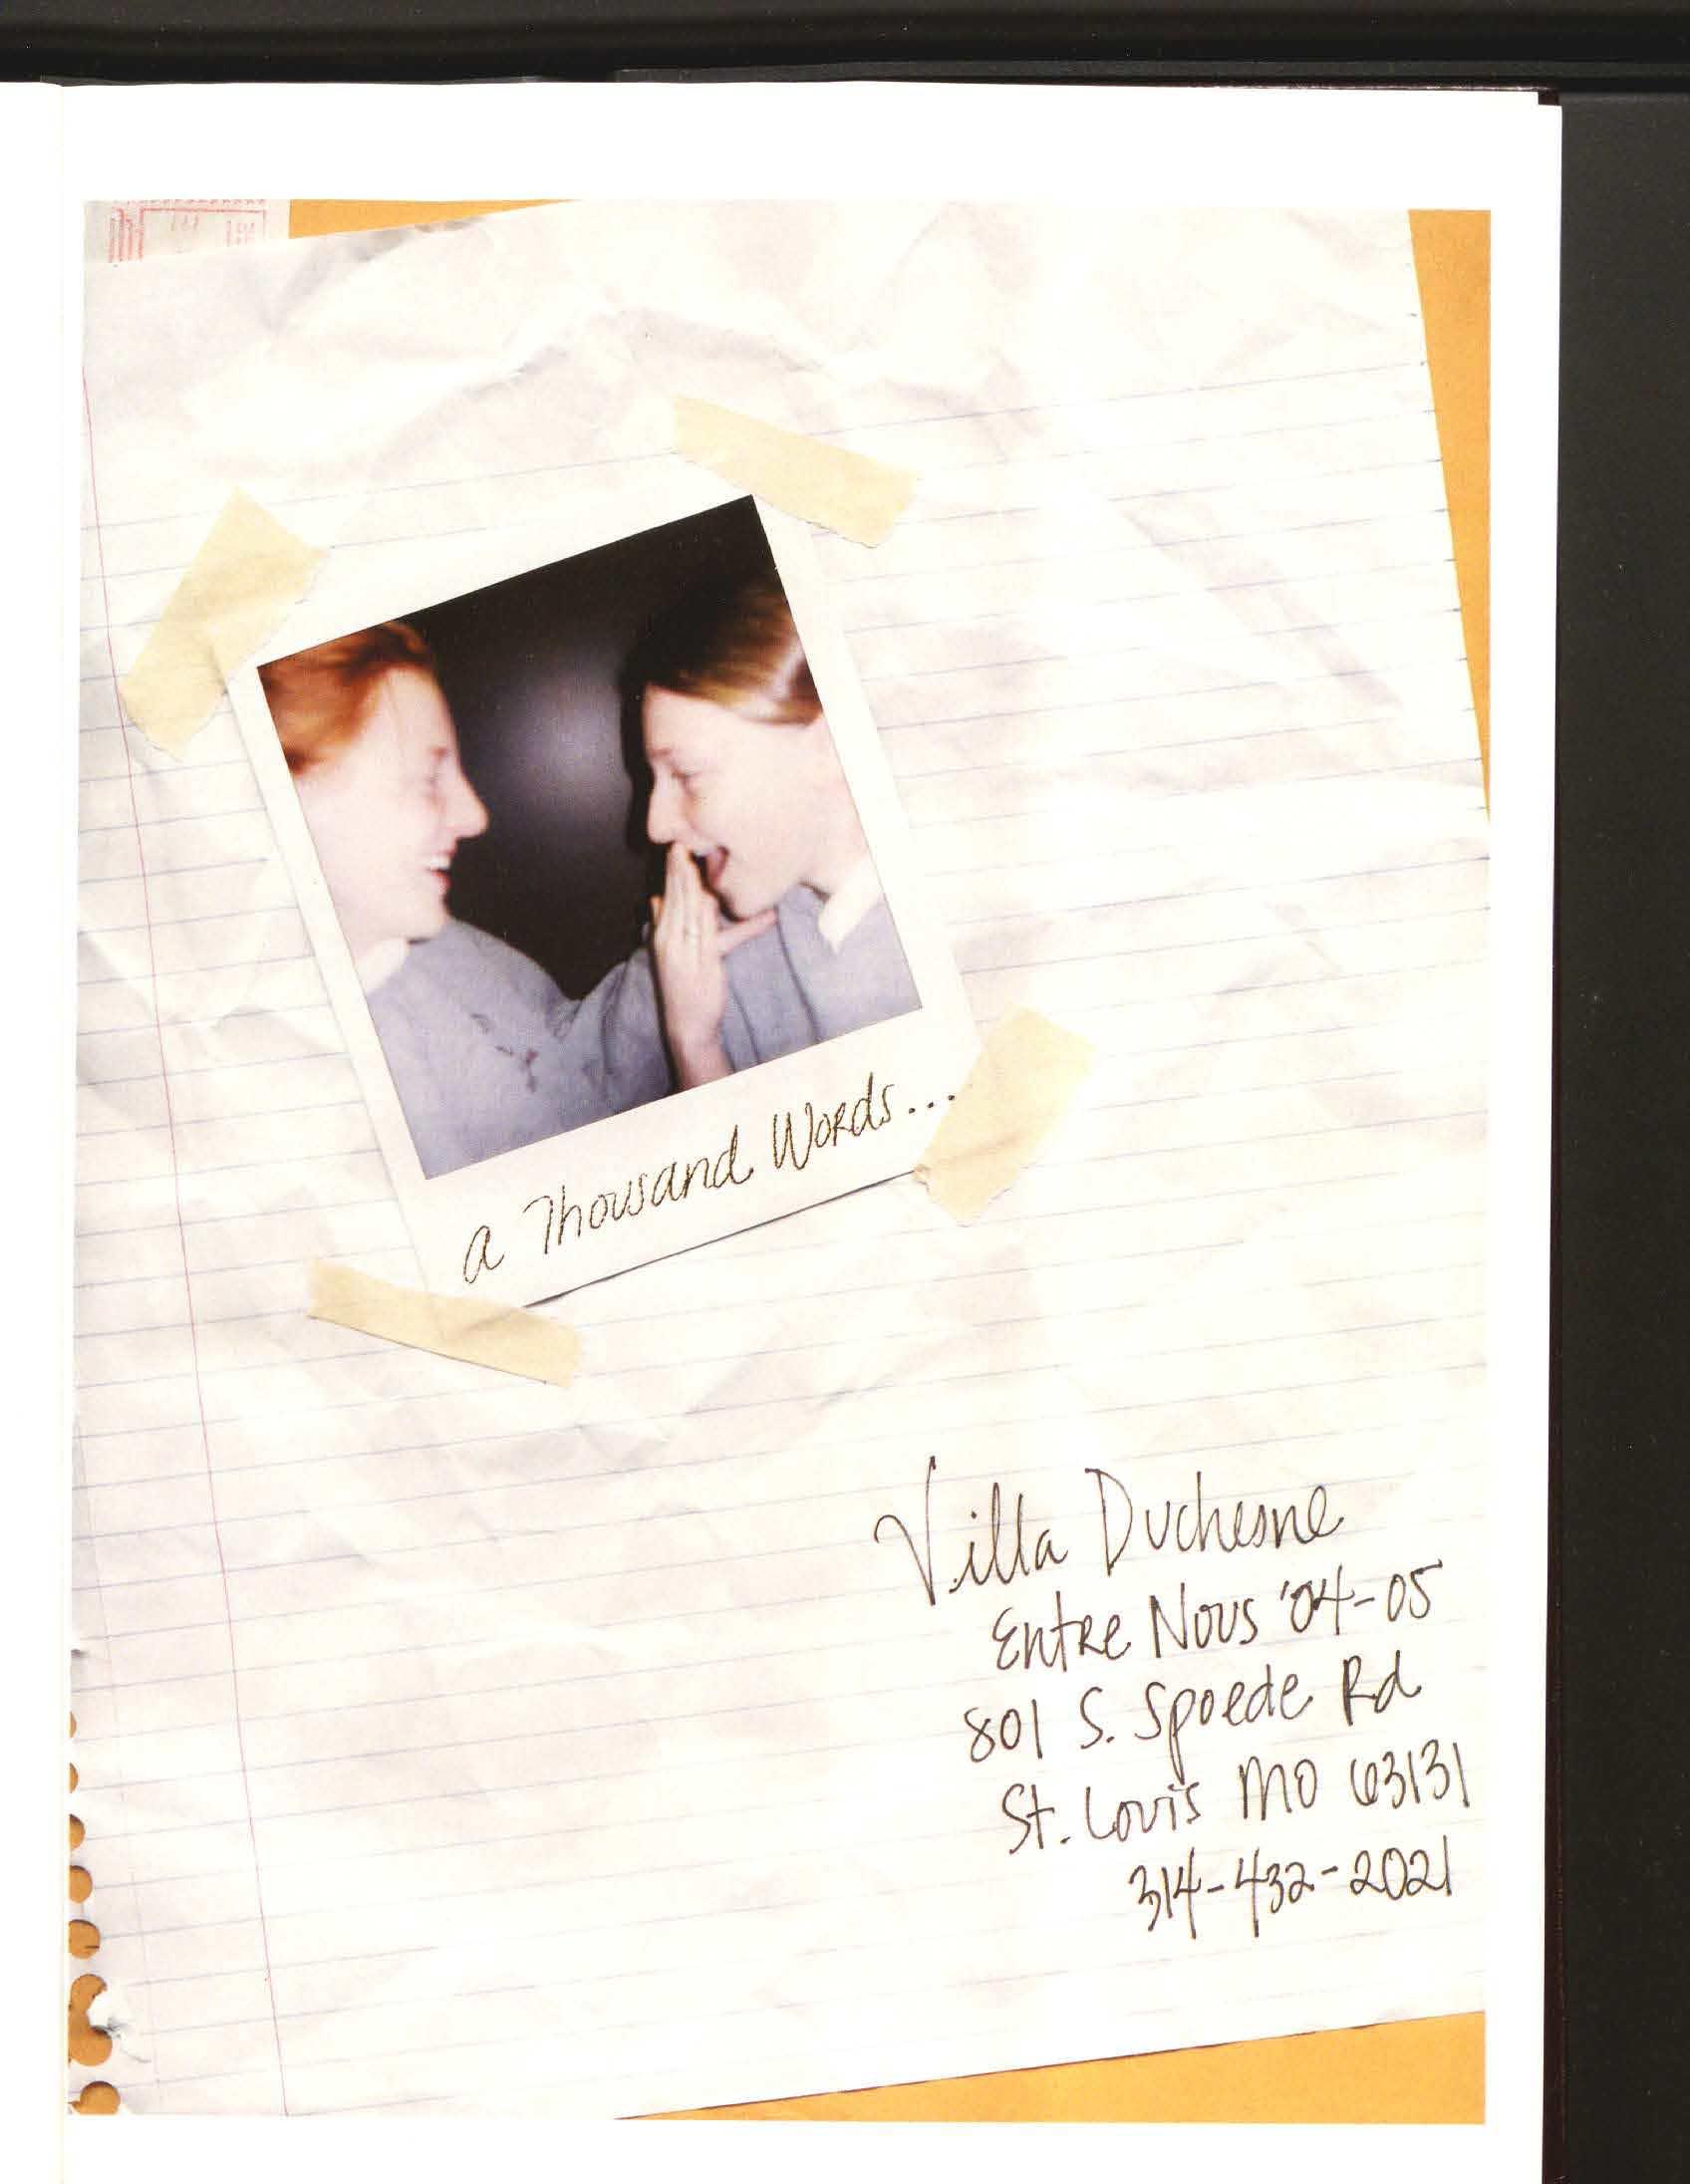 a Thousand Words...
Villa Duchesne
Entre Nous '04-05
801 S. Spoede Rd
St. Louis MO 63131
314-432-2021